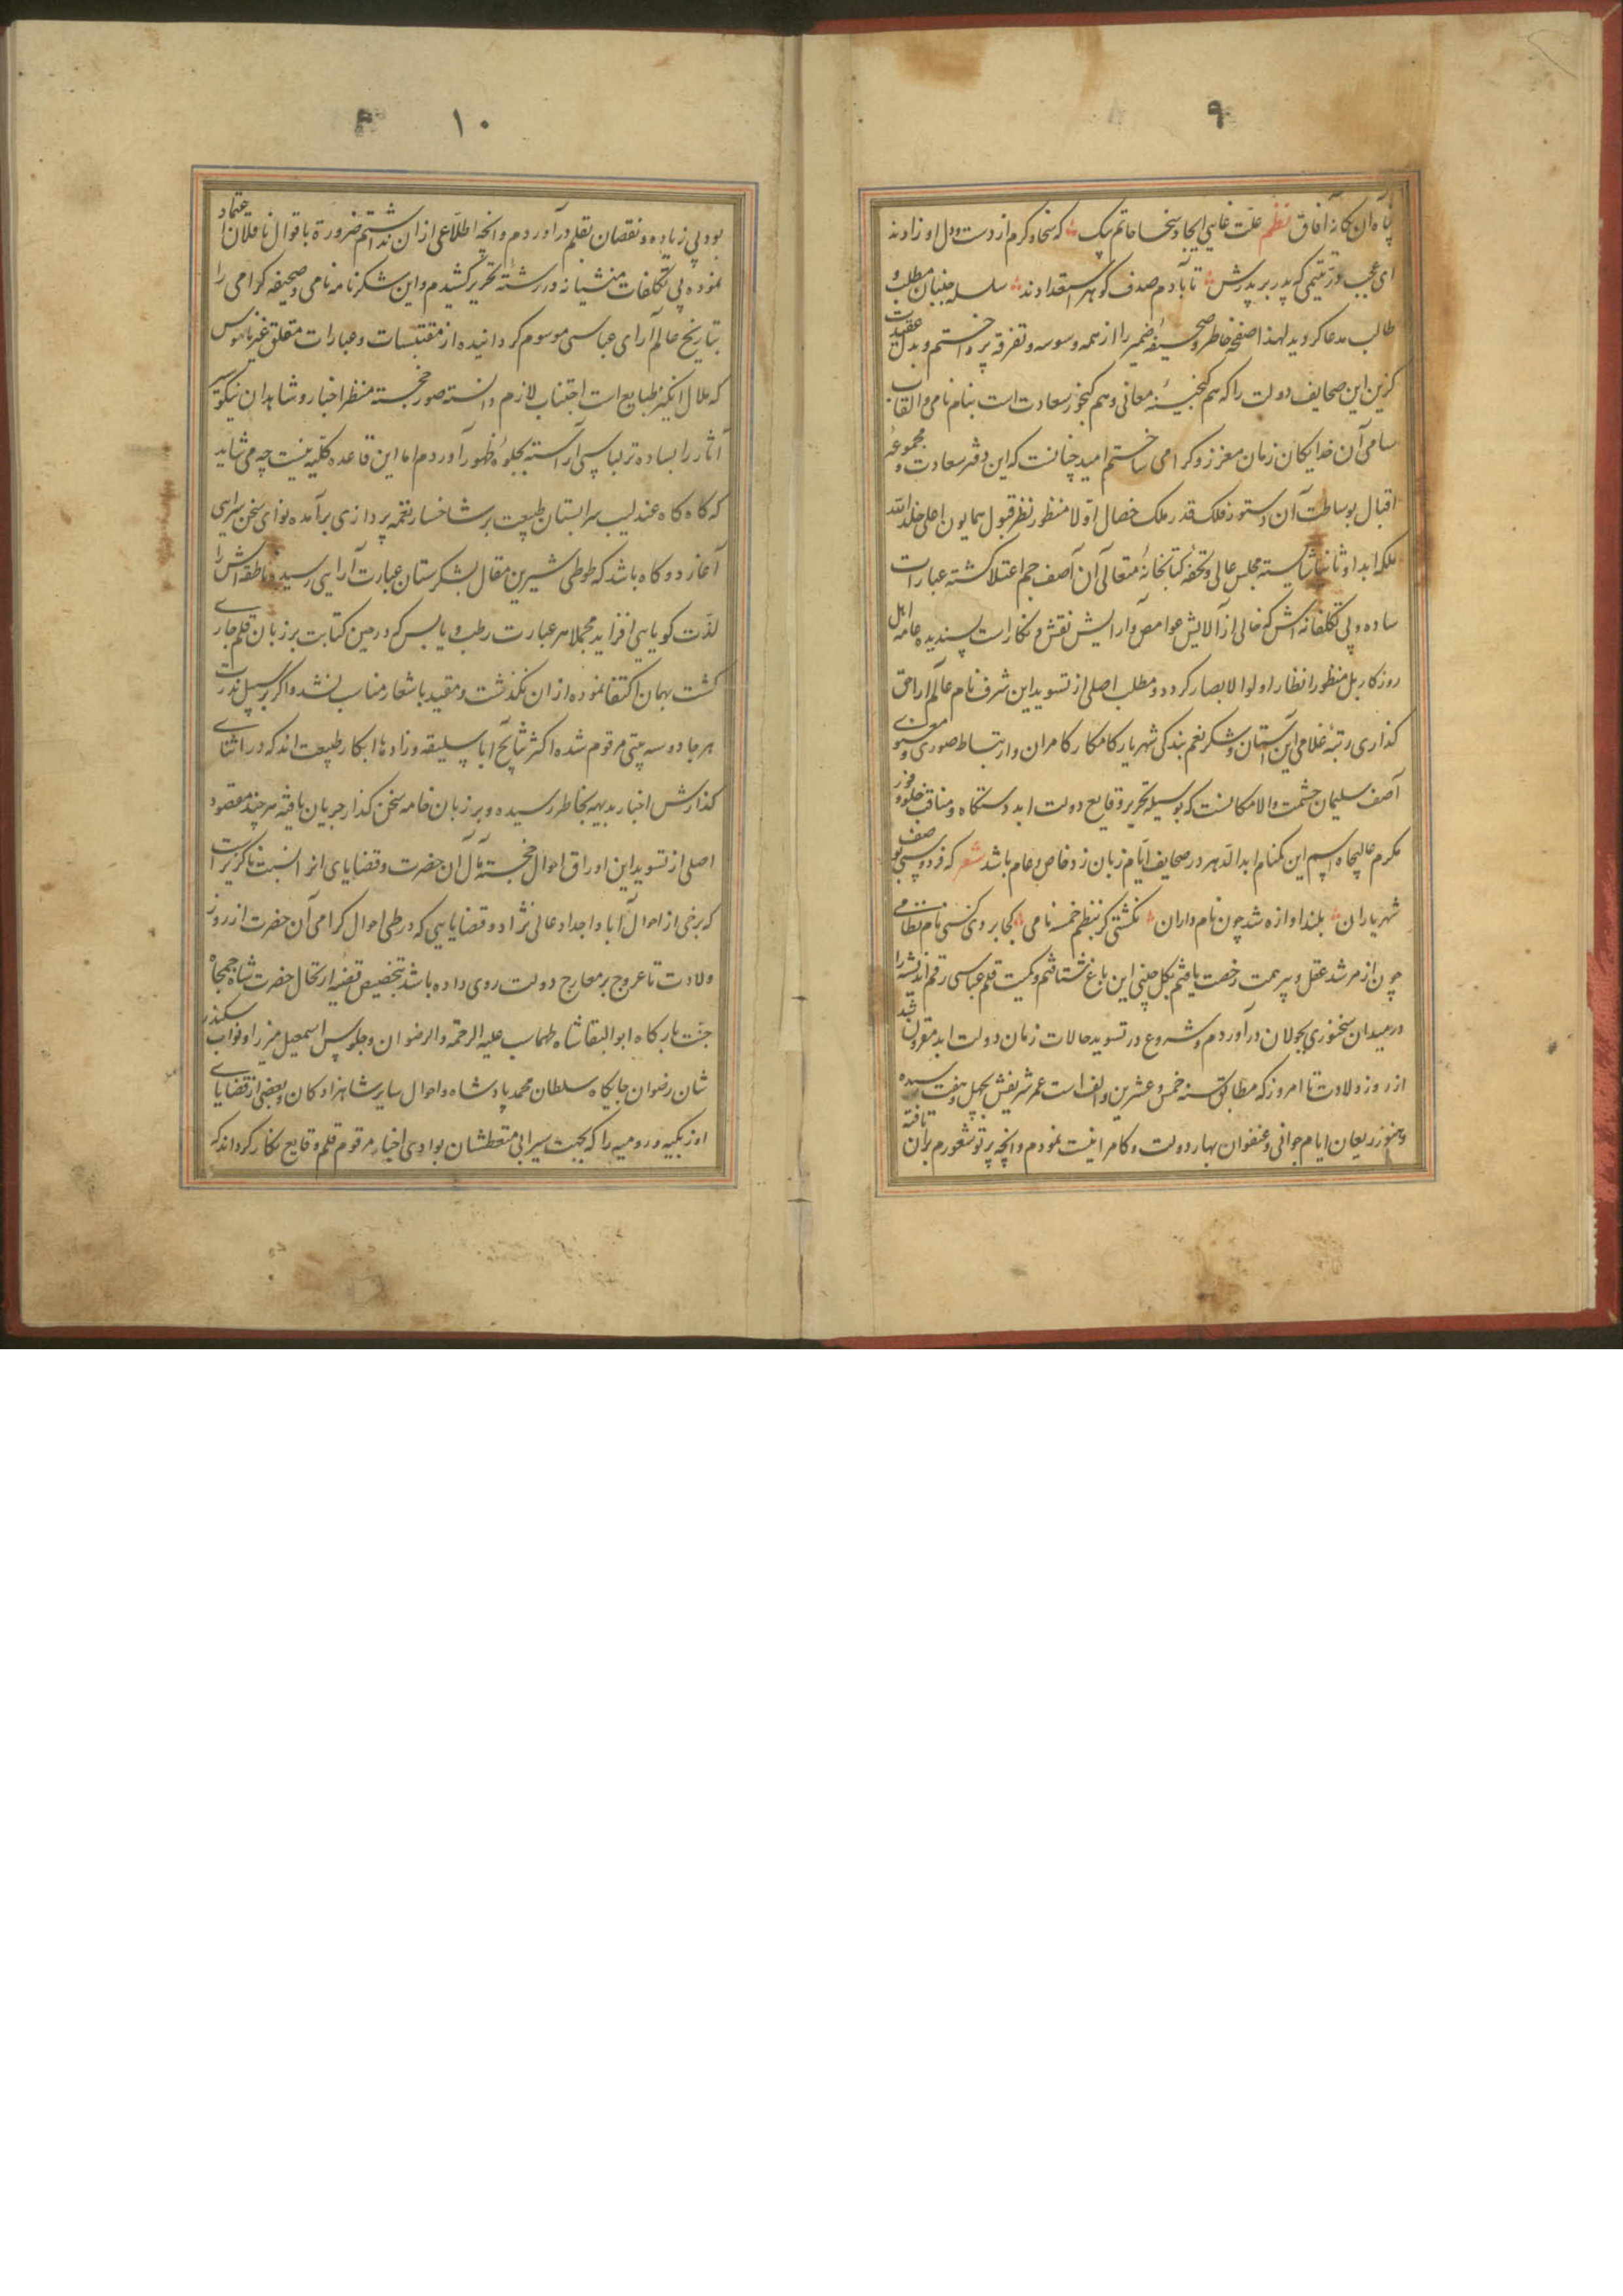 ۹
پناه آن یگانه آفاق نظم علت غایی ایجاد سخا حاتم بیک که سخا و کرم از دست و دل او زادند
ای عجب در یتیمی که پدر بر پدرش تا بآدم صدف گوهر استعدادند سلسله جنبان مطلب و
طالب مدعا کردید لهذا صفحه خاطر و صحیفه ضمیر را از همه وسوسه و تفرقه پرداختم و بدل عقیدت
گزین این صحایف دولت را که هم گنجینه معانی و هم گنجور سعادت است بنام نامی و القاب
سامی آن خدایکان زمان معزز و کرامی ساختم امید چنانست که این دفتر سعادت و مجموعه
اقبال بوساطت آن دستور فلک قدر ملک خصال اولا منظور نظر قبول همایون اعلی خلد الله
ملکه ابدا و ثانیا شایسته مجلس عالی و تحفه کتابخانه متعالی آن آصف جم اعتلا کشته عبارات
ساده و بی تکلفانه اش که خالی از آلایش غوامض و آرایش نقش و نکارات پسندیده عامه اهل
روزکار بل منظور انظار اولو الابصار کردد و مطلب اصلی از تسوید این شرف نام عالم آرا حق
کذاری رتبه غلامی این آستان و شکر نعم بندکی شهریار کامکار کامران و ارتباط صوری و معنوی
آصف سلیمان حشمت والا مکانست که بوسیله تحریر وقایع دولت ابد دستکاه و مناقب خلد و
مکرم عالیجاه اسم این کمنام ابد الدهر در صحایف ایام زبان زد خاص و عام باشد شعر که فردوسی بوصف
شهریاران بلند اوازه شد چون نام داران نکشتی کر بنظم خمسه نامی کجا بردی کسی نام نظامی
چون از مرشد عقل و پیر همت رخصت یافتم بکل چینی این باغ شتافتم و کمیت قلم عباسی رقم اندیشه را
در میدان سخنوری بجولان درآوردم و شروع در تسوید حالات زمان دولت ابد مقرون شد
از روز ولادت تا امروز که مطابق سنه خمس و عشرین و الف است عمر شریفش بچهل و هفت رسیده
و هنوز ریعان ایام جوانی و عنفوان بهار دولت و کامرانیست نمودم و انچه پرتو شعورم بران تافته
۱۰
بود بی زیاده و نقصان بقلم درآوردم و انچه اطلاعی از ان نداشتم ضرورة باقوال ناقلان اعتماد
نموده بی تکلفات منشیانه در رشته تحریر کشیدم و این شکرنامه نامی و صحیفه کرامی را
بتاریخ عالم آرای عباسی موسوم کردانیده از مقتبسات و عبارات مغلق غیر مانوس
که ملال انکیز طبایع است اجتناب لازم دانسته صور خجسته منظر اخبار و شاهدان نیکو
آثار را بساده تر لباسی آراسته بجلوه ظهور آوردم اما این قاعده کلیه نیست چه می شاید
که کاه کاه عندلیب سرابستان طبیعت بر شاخسار نغمه پردازی برآمده نوای سخن سرایی
آغازد و کاه باشد که طوطی شیرین مقال بشکرستان عبارت آرایی رسیده ناطقه اش را
لذت کویایی افزاید مجملا هر عبارت رطب و یابس که در حین کتابت بر زبان قلم جاری
کشت بهمان اکتفا نموده از ان نکذشت و مقید باشعار مناسب نشد و اکر بر سبیل ندرت
هر جا دو سه بیتی مرقوم شده اکثر نتایج آبا سلیقه و زادها ابکار طبیعت اند که در اثنای
کذارش اخبار بدیهه بخاطر رسیده و بر زبان خامه سخن کذار جریان یافته هر چند مقصود
اصلی از تسوید این اوراق احوال خجسته مآل آن حضرت و قضایای انزمانست ناکزیر است
که برخی از احوال آبا و اجداد عالی نژاد و قضایایی که در طی احوال کرامی آن حضرت از روز
ولادت تا عروج بر معارج دولت روی داده باشد بتخصیص قضیه ارتحال حضرت شاه جمجاه
جنت بارکاه ابو البقا شاه طهماسب علیه الرحمه و الرضوان و جلوس اسمعیل میرزا و نواب سکندر
شان رضوان جایکاه سلطان محمد پادشاه و احوال سایر شاهزادکان و بعضی از قضایای
اوزبکیه و رومیه را که بجهت سیرابی متعطشان بوادی اخبار مرقوم قلم وقایع نکار کرداند که